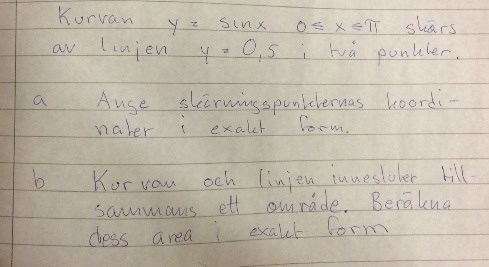 Kurvan y = sinx 0 ≤ x ≤ π skärs
av linjen y = 0,5 i två punkter.
a Ange skärningspunkternas koordi-
nater i exakt form.
b Kurvan och linjen innesluter till-
sammans ett område. Beräkna
dess area i exakt form